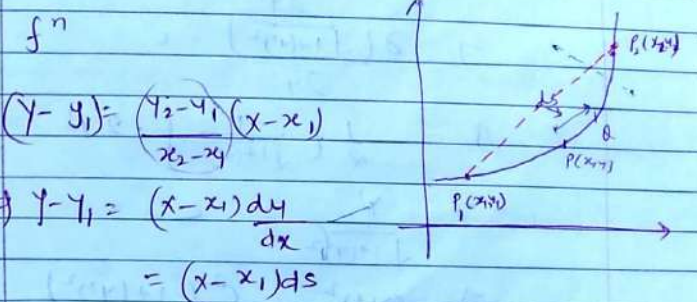 fⁿ
(y - y₁) = (y₂ - y₁ / x₂ - x₁) (x - x₁)
y - y₁ = (x - x₁) dy/dx
= (x - x₁) ds
P₂(x₂y₂)
ds
Q
P(x,y)
P₁(x₁y₁)